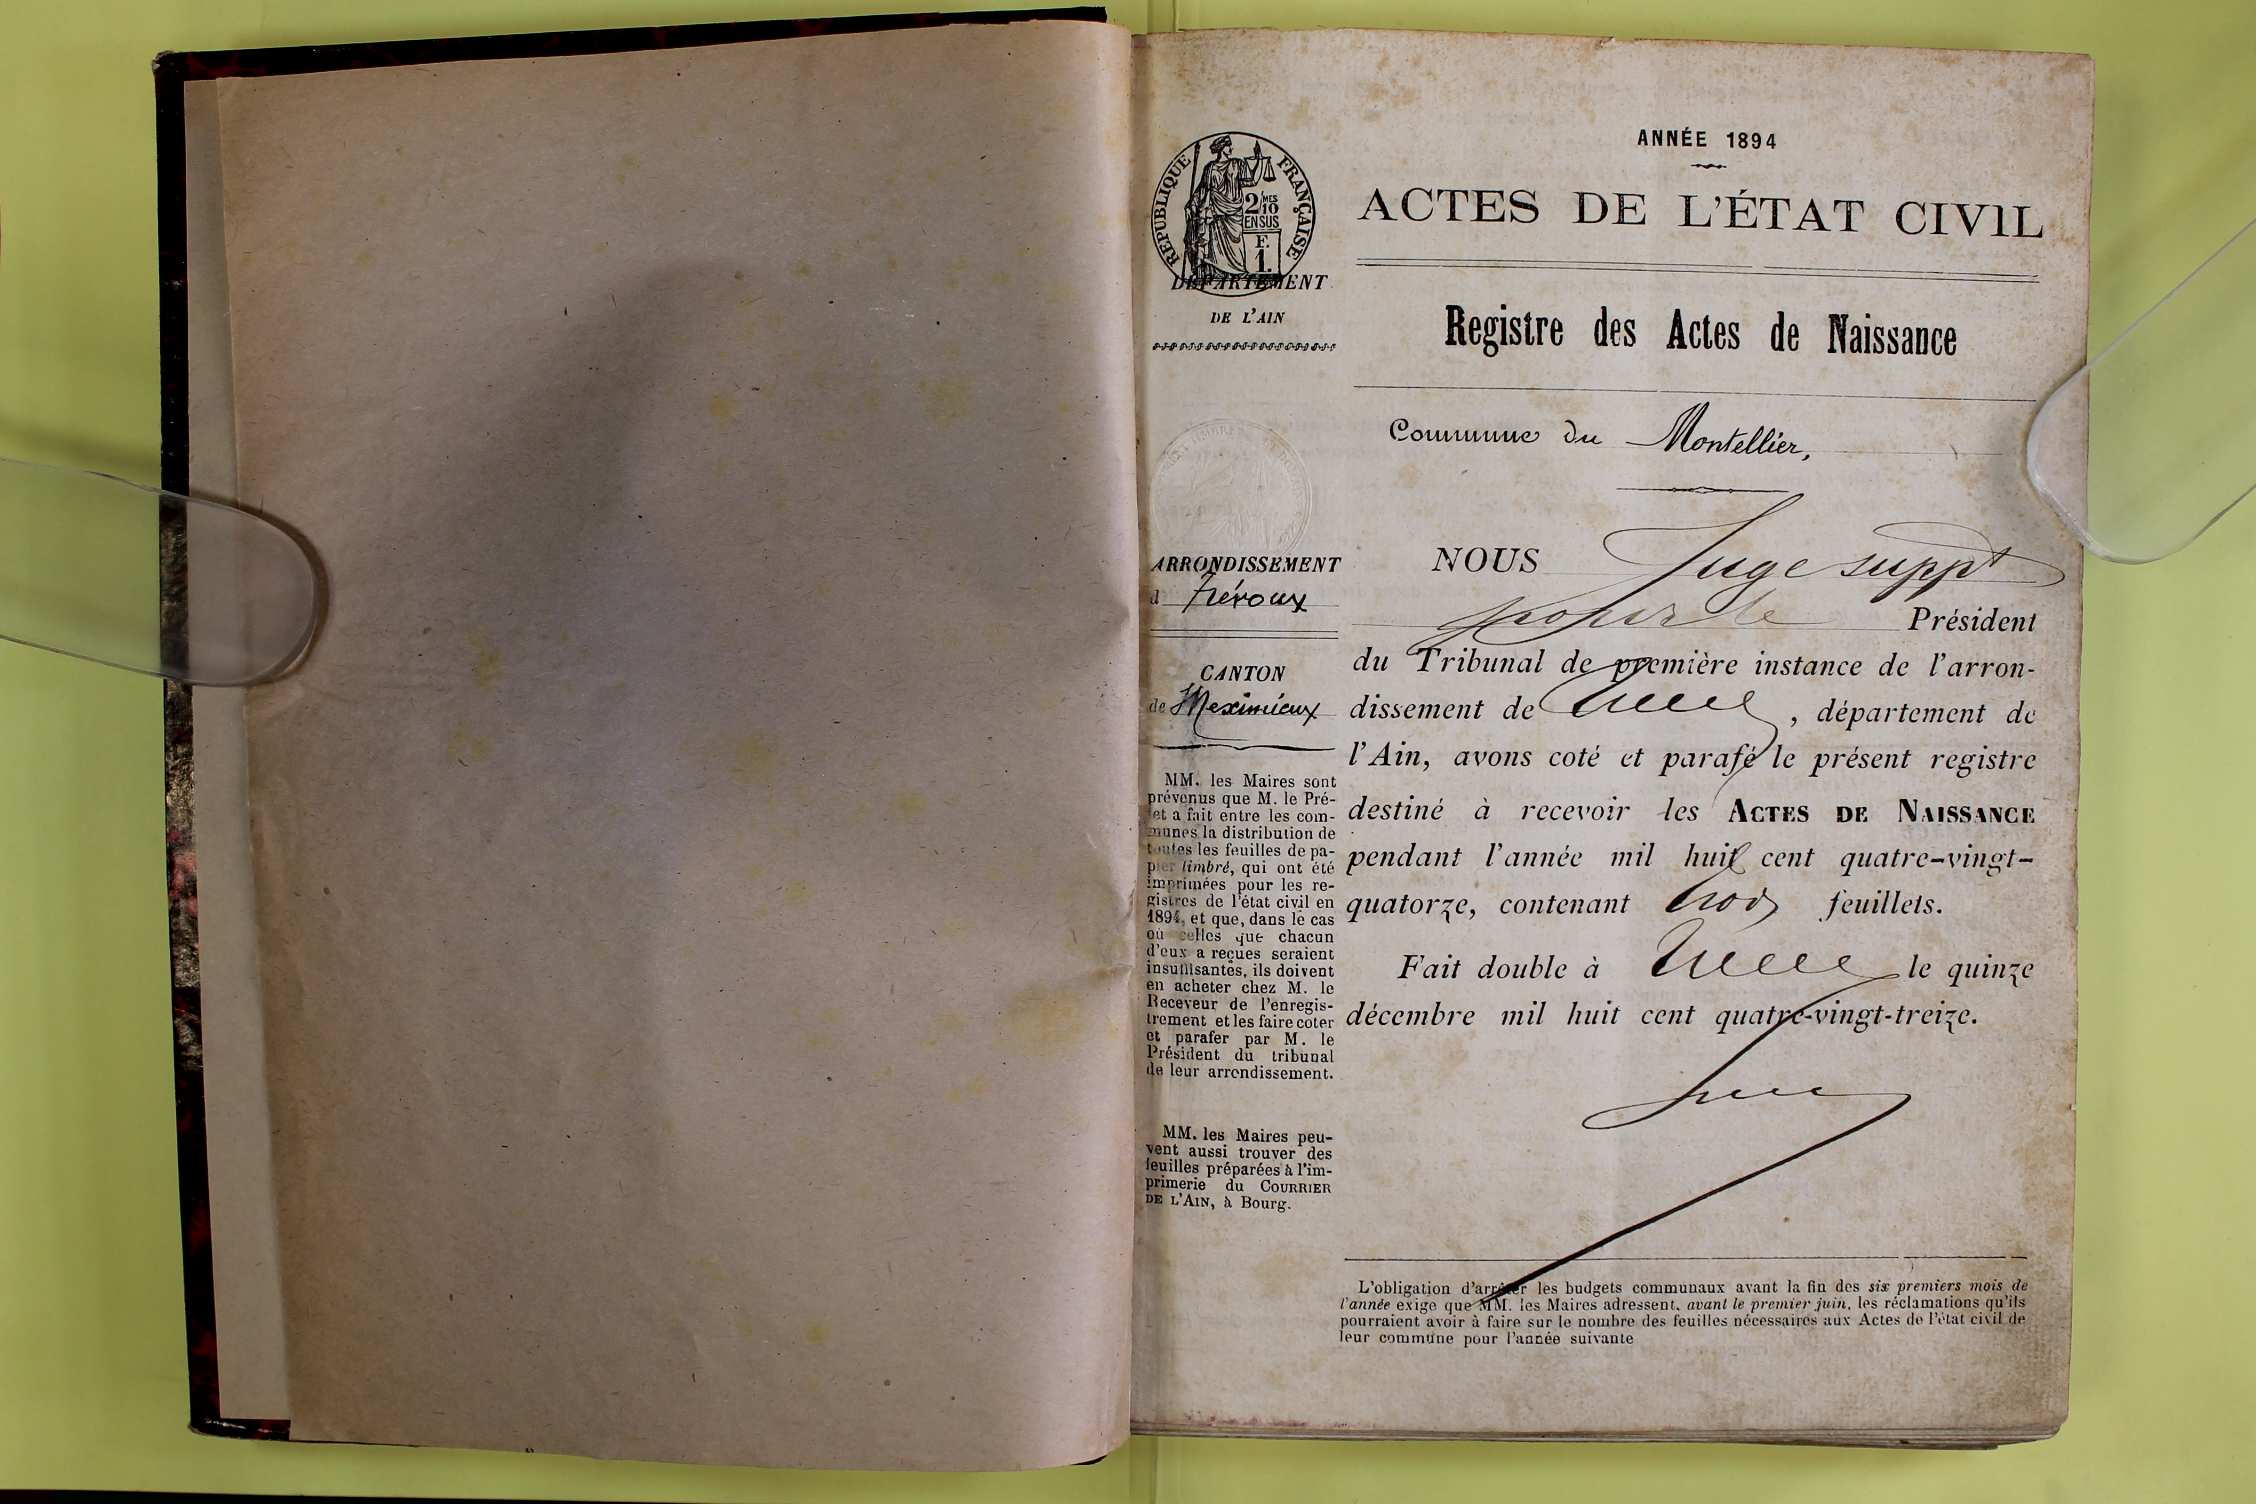 RÉPUBLIQUE FRANÇAISE
2/MES
10
EN SUS
F.
1.
DÉPARTEMENT
DE L'AIN
ARRONDISSEMENT
d Trévoux
CANTON
de Meximieux
MM. les Maires sont
prévenus que M. le Pré-
fet a fait entre les com-
munes la distribution de
toutes les feuilles de pa-
pier timbré, qui ont été
imprimées pour les re-
gistres de l'état civil en
1894, et que, dans le cas
où celles que chacun
d'eux a reçues seraient
insuffisantes, ils doivent
en acheter chez M. le
Receveur de l'enregis-
trement et les faire coter
et parafer par M. le
Président du tribunal
de leur arrondissement.
MM. les Maires peu-
vent aussi trouver des
feuilles préparées à l'im-
primerie du COURRIER
DE L'AIN, à Bourg.
ANNÉE 1894
ACTES DE L'ÉTAT CIVIL
Registre des Actes de Naissance
Commune du Montellier,
NOUS Juge suppt
pour le Président
du Tribunal de première instance de l'arron-
dissement de , département de
l'Ain, avons coté et parafé le présent registre
destiné à recevoir les ACTES DE NAISSANCE
pendant l'année mil huit cent quatre-vingt-
quatorze, contenant trois feuillets.
Fait double à le quinze
décembre mil huit cent quatre-vingt-treize.
L'obligation d'arrêter les budgets communaux avant la fin des six premiers mois de
l'année exige que MM. les Maires adressent, avant le premier juin, les réclamations qu'ils
pourraient avoir à faire sur le nombre des feuilles nécessaires aux Actes de l'état civil de
leur commune pour l'année suivante